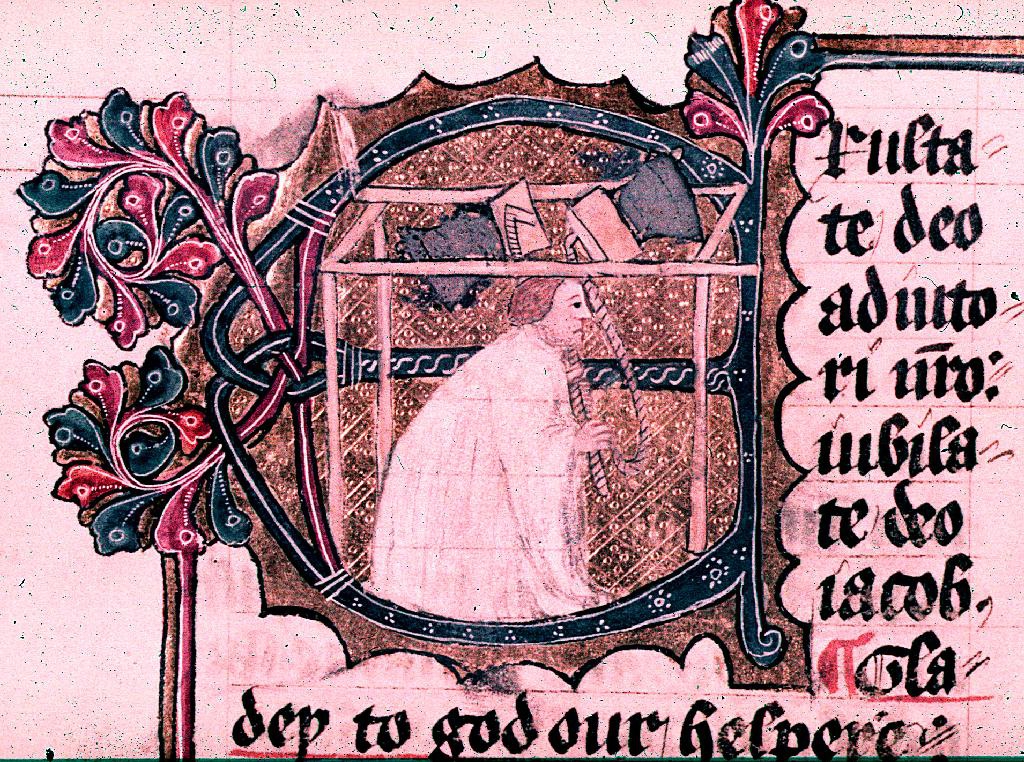 Exulta-
te deo
adiuto-
ri nr̄o:
iubila-
te deo
iacob.
¶ Gla-
deþ to god our helpere: